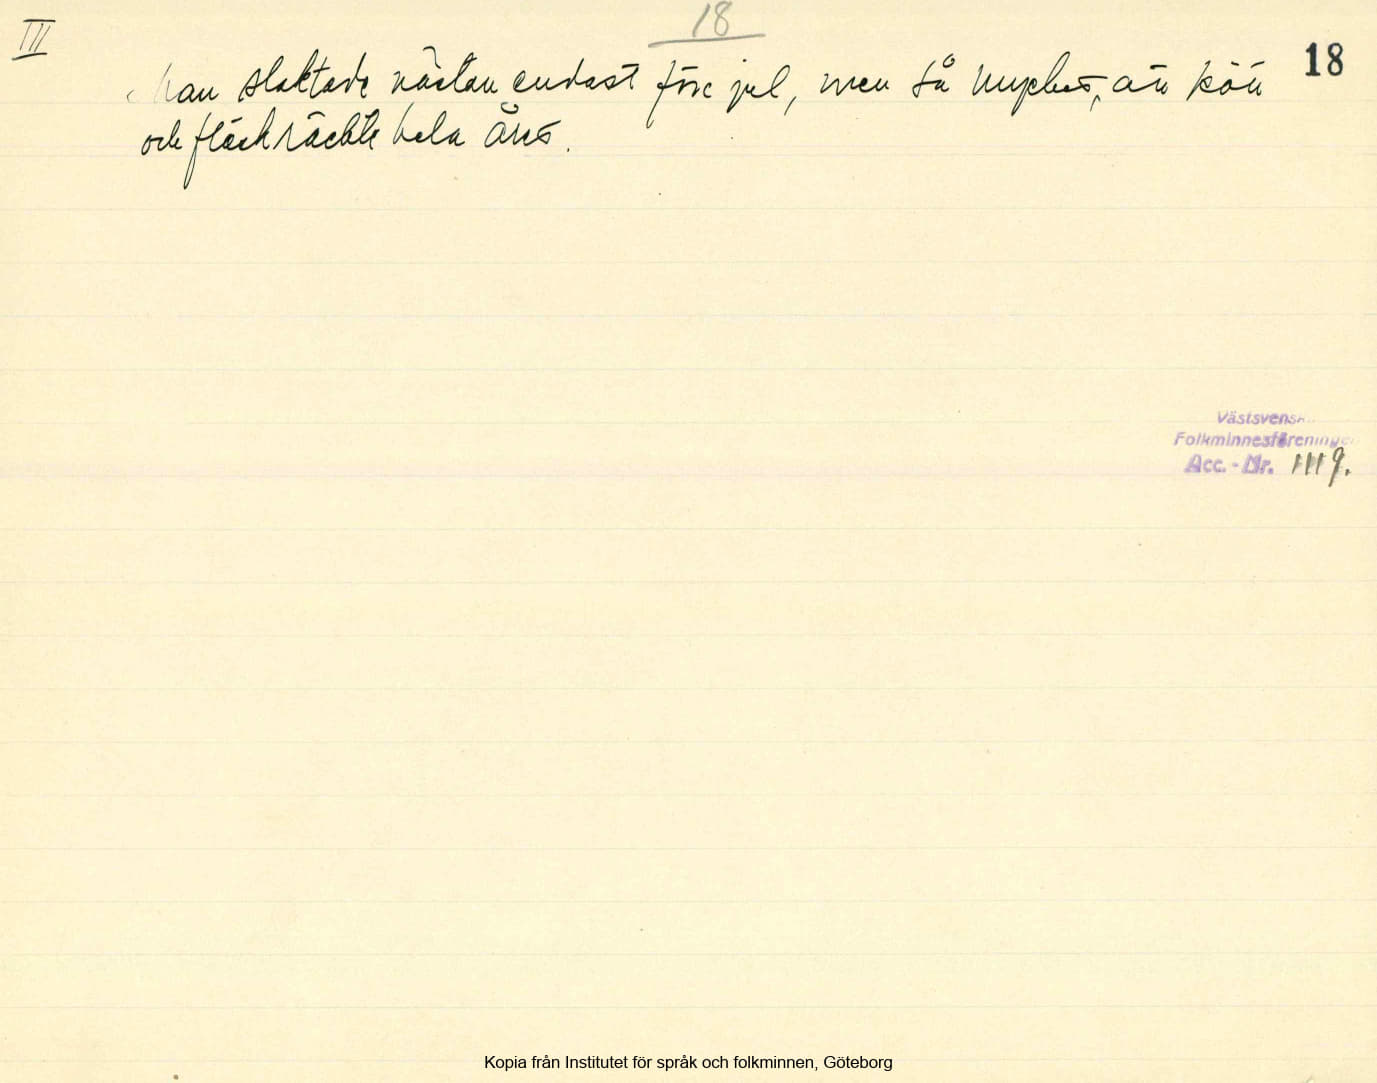 III
18
18
Man slaktade nästan endast före jul, men så mycket, att kött
och fläsk räckte hela året.
Västsvenska
Folkminnesföreningen
Acc. - Nr. 1119.
Kopia från Institutet för språk och folkminnen, Göteborg